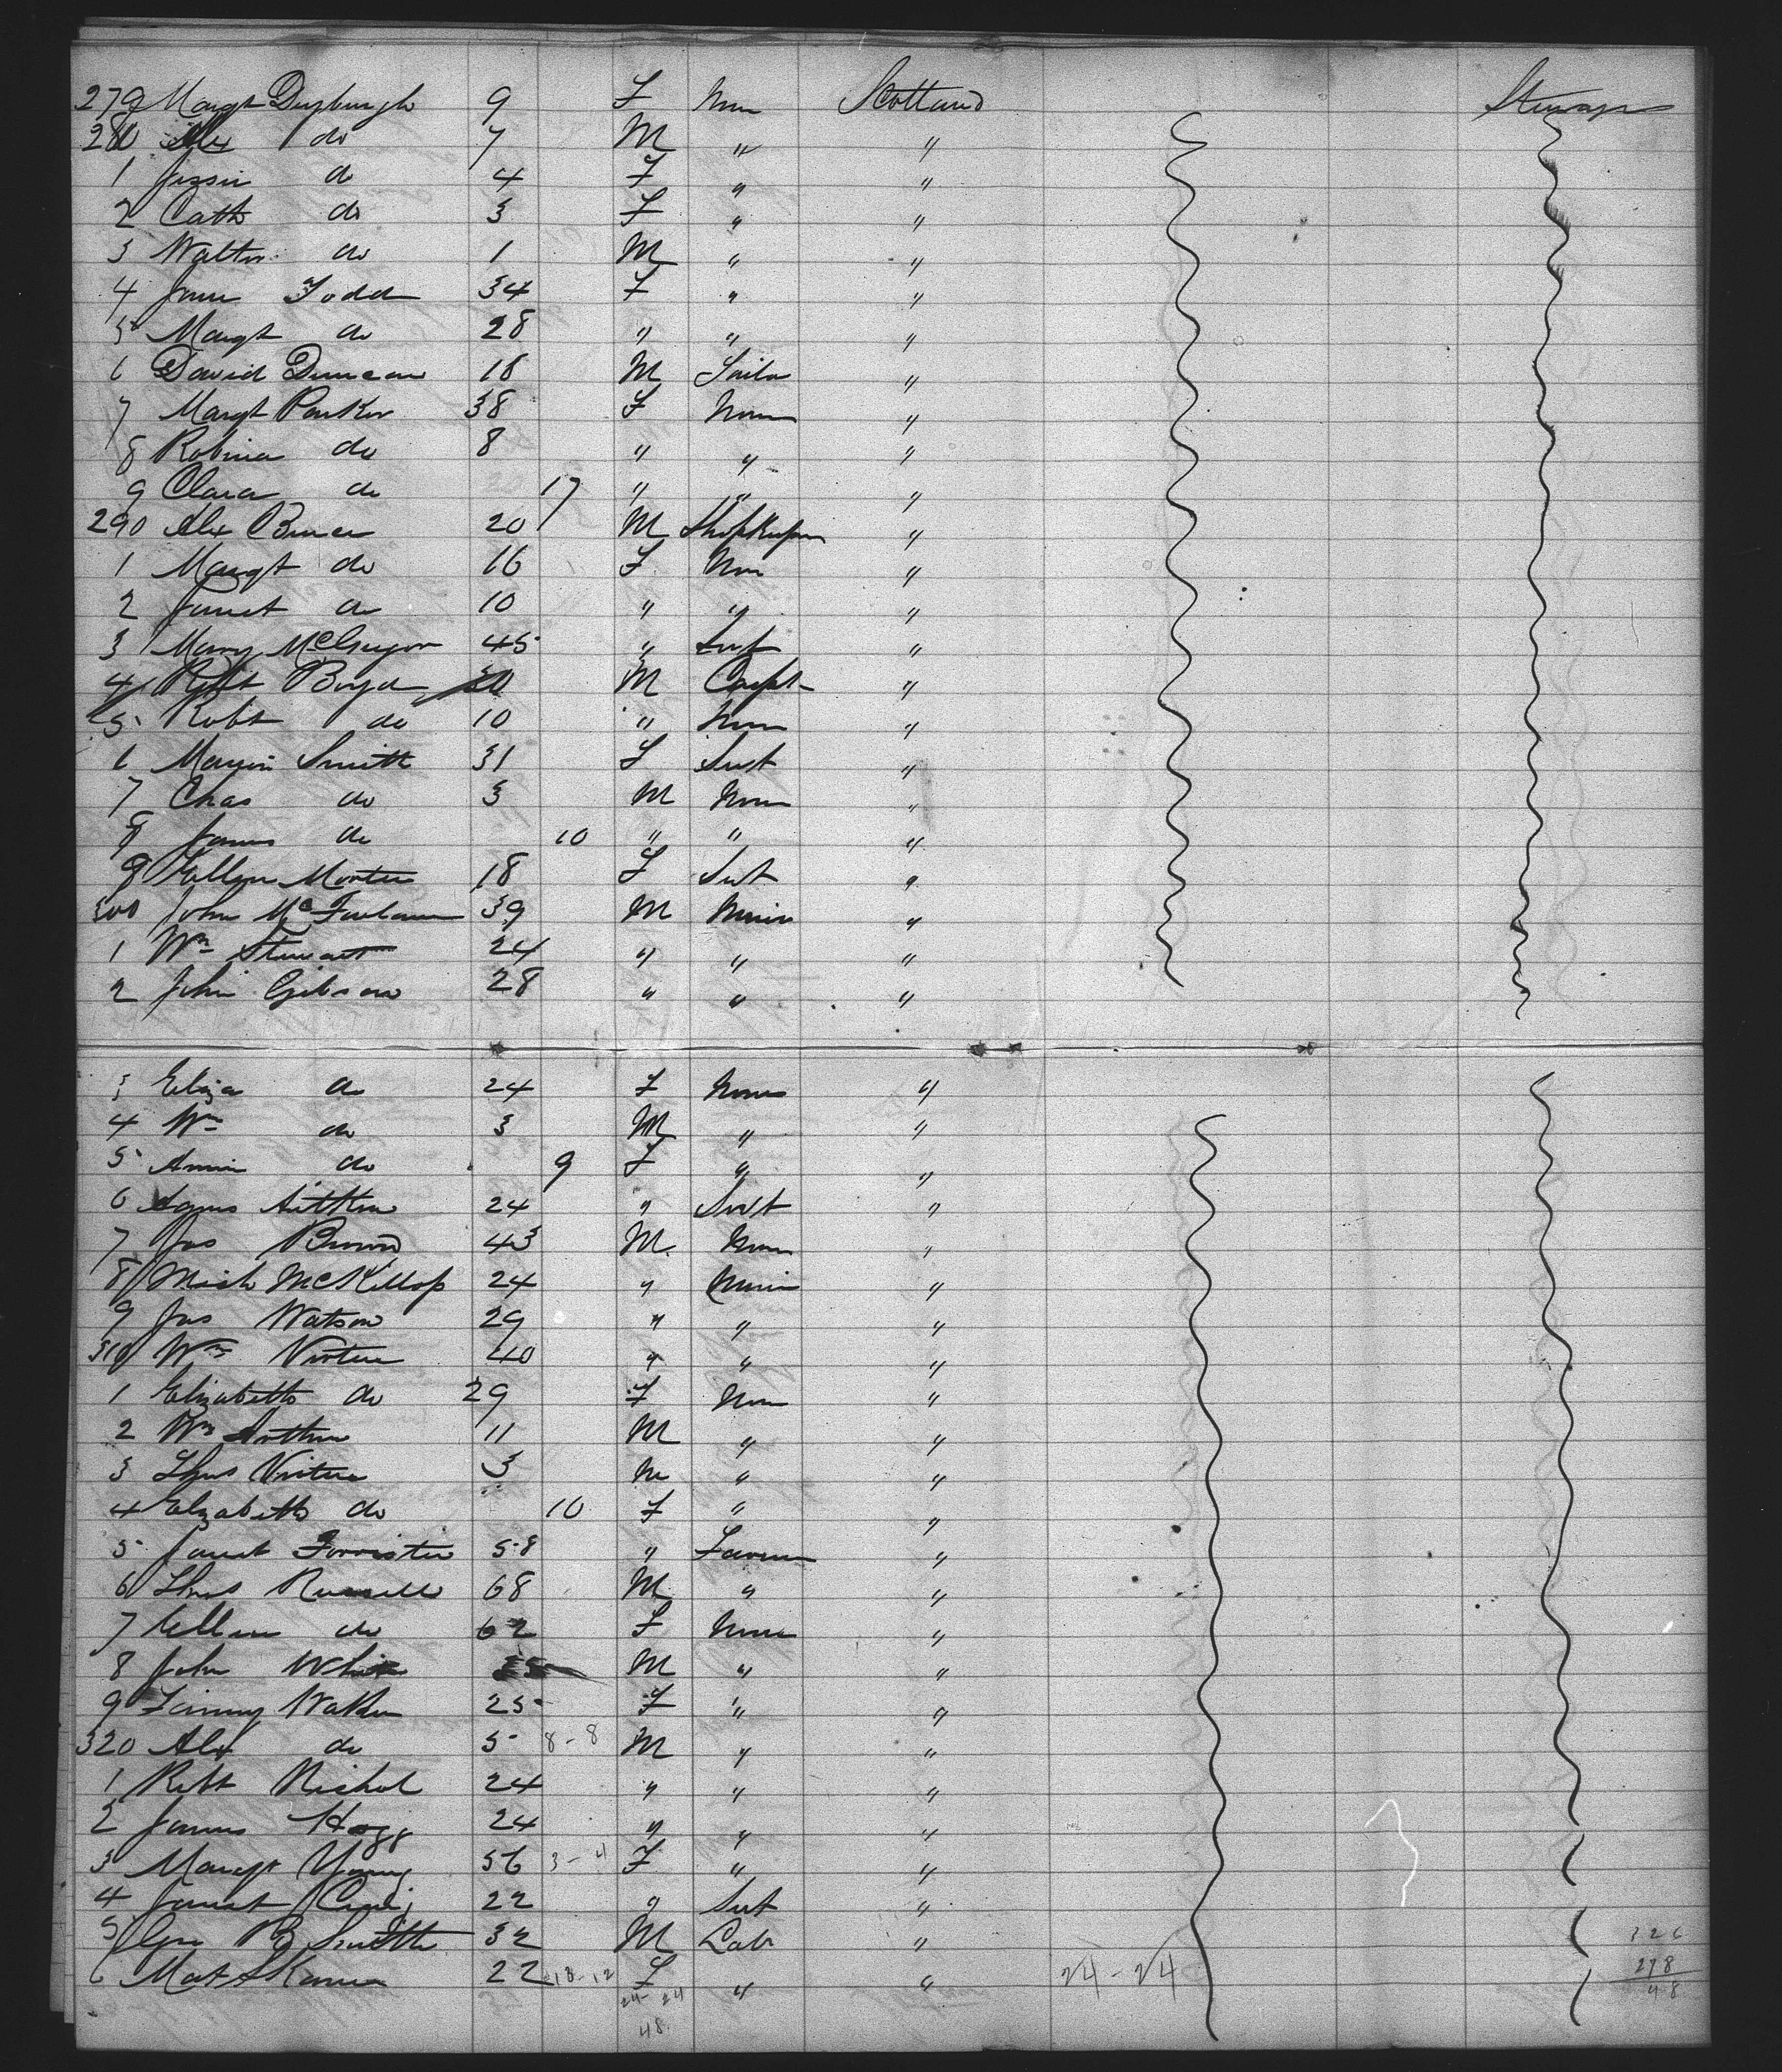 279 Margt 9 F Scotland Steerage
280 Alex do 7 M " "
1 Jessie do 4 F " "
2 Cath do 3 F " "
3 Walter do 1 M " "
4 Jane Todd 34 F " "
5 Margt do 28 " " "
6 David Duncan 18 M Sailor "
7 Margt Parker 38 F None "
8 Robina do 8 " " "
9 Clara do 17 " " "
290 Alex Bruce 20 M "
1 Margt do 16 F None "
2 Janet do 10 " " "
3 Mary McGregor 45 " "
4 Robt Boyd M Carpt "
5 Robt do 10 " None "
6 Smith 31 F Servt "
7 Chas do 3 M None "
8 James do 10 " " "
9 Ellen 18 F "
300 John McFarlane 39 M Miner "
1 Wm Stewart 24 " " "
2 John Gibson 28 " " "
3 Eliza do 24 F None "
4 Wm do 3 M " "
5 Annie do 9 F " "
6 Agnes Aitken 24 " Servt "
7 Jas Brown 43 M None "
8 Mich McKillop 24 " Miner "
9 Jas Watson 29 " " "
310 Wm Virtue 40 " " "
1 Elizabeth do 29 F None "
2 Wm 11 M " "
3 Thos Virtue 3 M " "
4 Elizabeth do 10 F " "
5 Janet Forrister 58 " "
6 Thos Russell 68 M " "
7 Ellen do 62 F None "
8 John White M " "
9 Walker 25 F " "
320 Alex do 5 8-8 M " "
1 Robt Nichol 24 " " "
2 James Hogg 24 " " "
3 Margt Young 56 3-4 F " "
4 Janet 22 " "
5 Geo B Smith 32 M Lab "
326
6 22 13-12 F " " 24-24
278
24-24
48
48